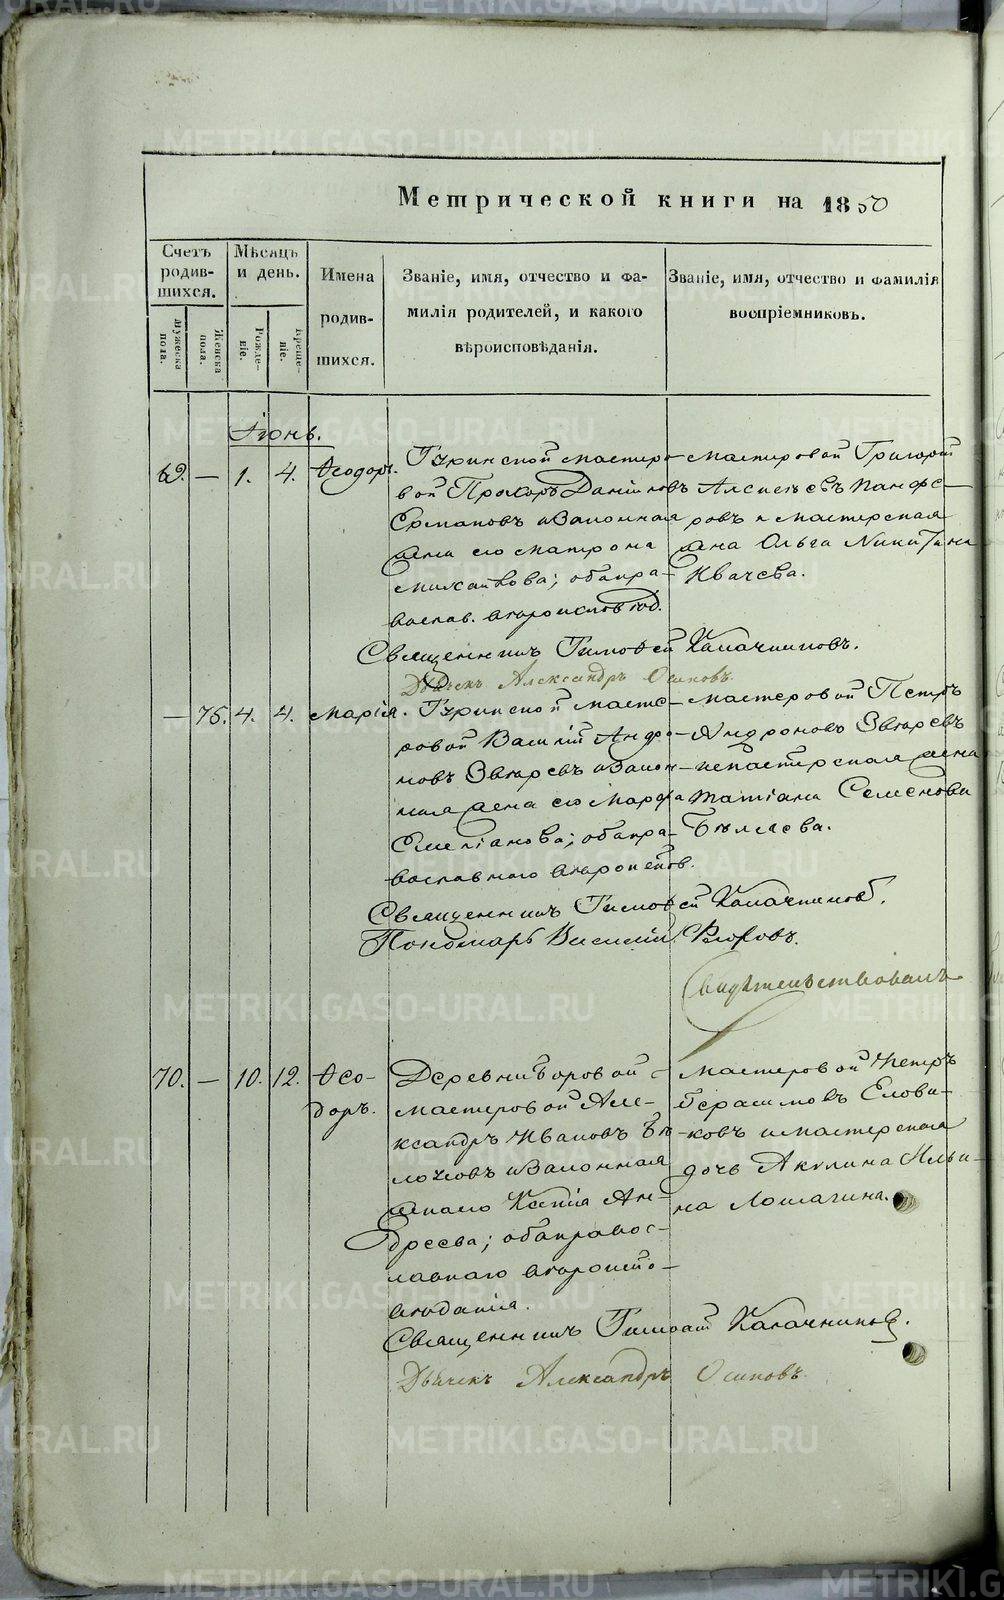 Метрической книги на 1850
Счетъ родив-шихся.
Мѣсяцъ и день.
Имена родив-шихся.
Званіе, имя, отчество и фа-
милія родителей, и какого
вѣроисповѣданія.
Званіе, имя, отчество и фамилія
воспріемниковъ.
Мужеска пола.
Женска пола.
Рожде-ніе.
Креще-ніе.
Іюнь.
69. — 1. 4. Ѳеодоръ.
Туринской мастеро-
вой Прохоръ Даніиловъ
Ермаковъ и законная
жена его Матрона
Михайлова; оба пра-
вослав. вѣроисповѣд.
Мастеровой Григорій
Алексѣевъ Панфе-
ровъ и мастерская
жена Ольга Никитина
Ивачева.
Священникъ Тимоѳей Калачниковъ.
Дьячекъ Александръ Осиповъ.
— 75. 4. 4. Марія.
Туринской масте-
ровой Василій Андро-
новъ Звѣревъ и закон-
ная жена его Марфа
Емеліанова; оба пра-
вославнаго вѣроиспов.
Мастеровой Петръ
Андроновъ Звѣревъ
и мастерская жена
Татіана Семенова
Бѣляева.
Священникъ Тимоѳей Калачниковъ.
Пономарь Василій Флоровъ.
Свидѣтельствовалъ
70. — 10. 12. Ѳео-
доръ.
Деревни Боровой
мастеровой Але-
ксандръ Ивановъ Бѣ-
лоусовъ и законная
жена его Ксенія Ан-
дреева; оба правос-
лавнаго вѣроиспо-
вѣданія.
Мастеровой Петръ
Герасимовъ Елови-
ковъ и мастерская
дочь Акулина Ильи-
на Лошагина.
Священникъ Тимоѳей Калачниковъ.
Дьячекъ Александръ Осиповъ.
METRIKI.GASO-URAL.RU